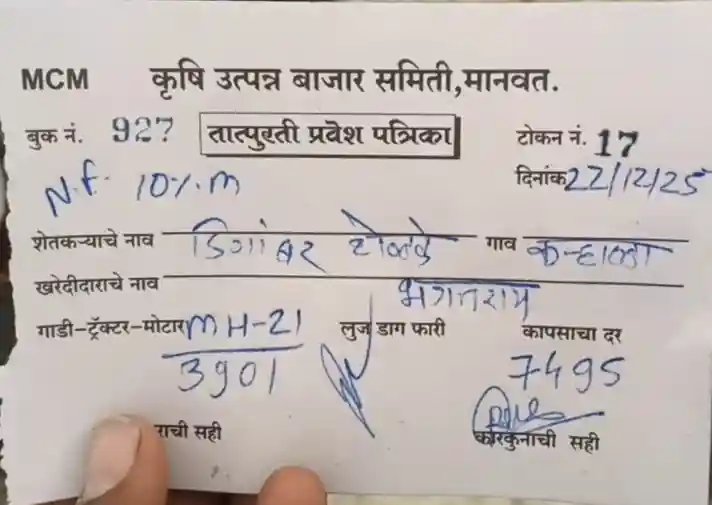 MCM कृषि उत्पन्न बाजार समिती,मानवत.
बुक नं. 927 तात्पुरती प्रवेश पत्रिका टोकन नं. 17
N.f. 10%.m दिनांक 22/12/25
शेतकऱ्याचे नाव डिगांबर गाव कऱ्हाळा
खरेदीदाराचे नाव भगतराम
गाडी-ट्रॅक्टर-मोटार MH-21 लुज डाग फारी कापसाचा दर
3901 7495
राची सही कारकुनाची सही